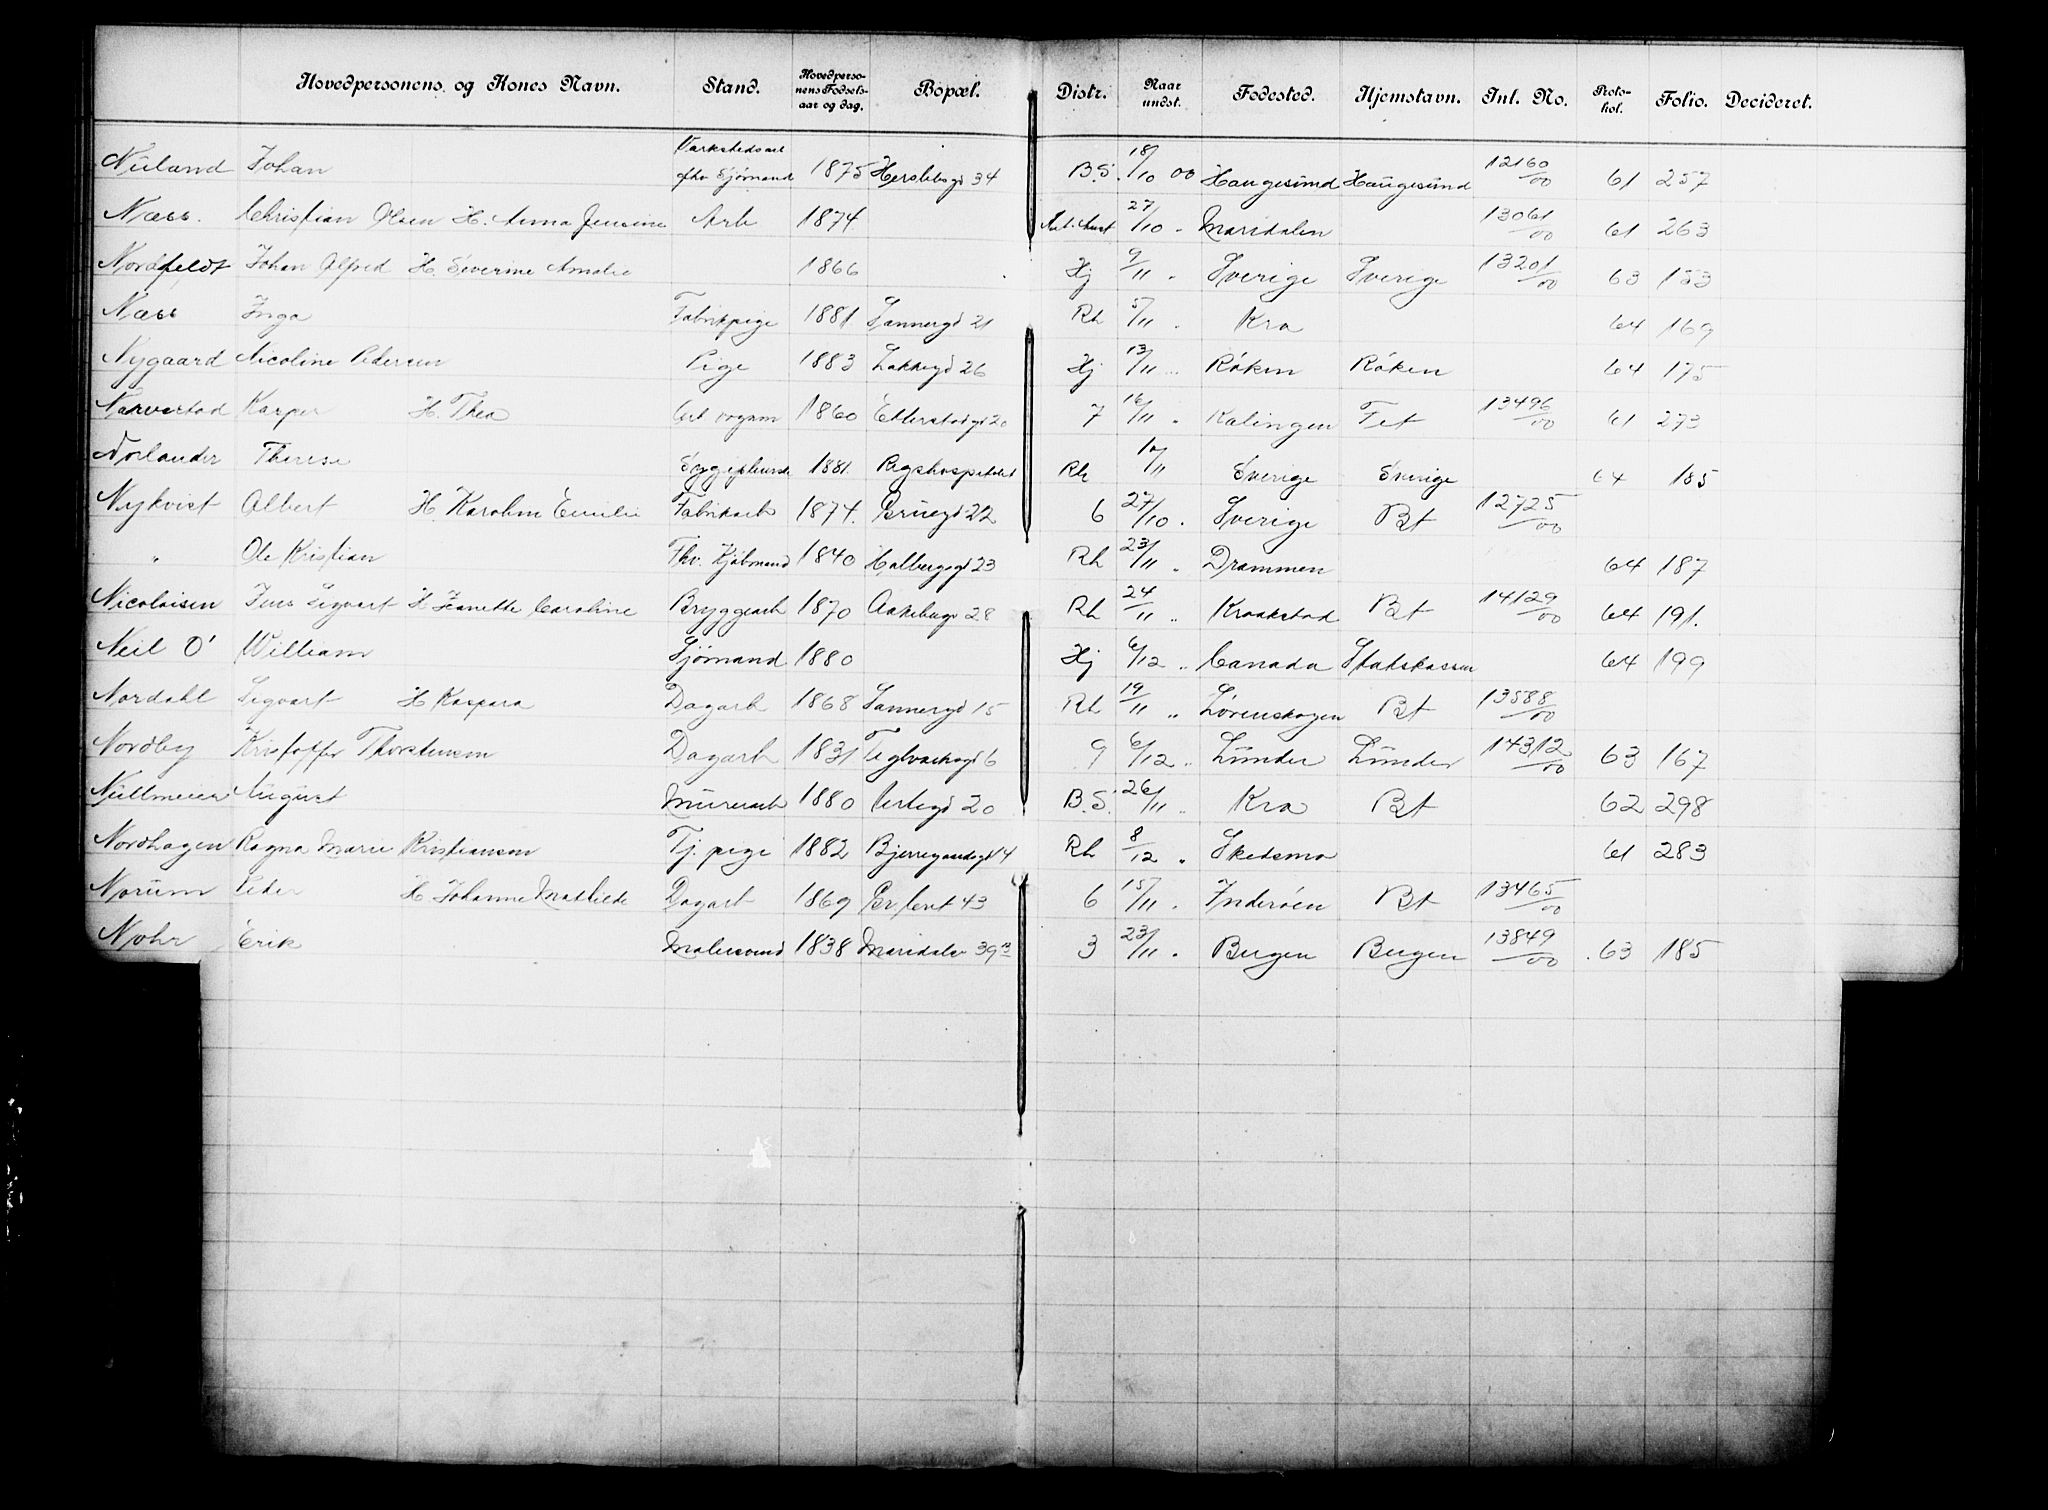 Hovedpersonens og Kones Navn. Stand. Hovedperso-nens Fødsels-aar og dag. Bopæl. Distr. Naar undst. Fødested. Hjemstavn. Inl. No. Proto-kol. Folio. Decideret.
Nüland Johan Værkstedsarb fhv Sjømand 1875 Herslebsgd 34 B.S. 18/10 00 Haugesund Haugesund 12160/00 61 257
Næss. Christian Olsen H. Anna Jensine Arb 1874 27/10 " Maridalen 13061/00 61 263
Nordfeldt Johan Alfred H. Severine Amalie 1866 Hj 9/11 " Sverige Sverige 13201/00 63 153
Næss Inga Fabrikpige 1881 Sannergd 21 Rh 5/11 " Kra 64 169
Nygaard Nicoline Pedersen Pige 1883 Lakkegd 26 Hj 13/11 " Røken Røken 64 175
Narverstad Kasper H. Thea 1860 Etterstadgd 20 7 16/11 " Kalingen Fet 13496/00 61 273
Norlander Therese 1881. Rigshospitalet Rh 10/11 Sverige Sverige 64 185
Nykvist Albert H Karoline Emilie Fabrikarb 1874. Bruegd 22 6 27/10 " Sverige Bt 12725/00
" Ole Kristian Fhv. Kjøbmand 1840 Holbergsgd 23 Rh 23/11 " Drammen 64 187
Nicolaisen Jens Sigvart H Jeanette Caroline Bryggearb 1870 Aakebergv 28 Rh 24/11 " Kraakstad Bt 14129/00 64 191.
Neil O' William Sjømand 1880 Hj 6/12 " Canada Statskassen 64 199
Nordahl Sigvart H Kaspara Dagarb 1868 Sannergd 15 Rh 19/11 " Lørenskogen Bt 13588/00
Nordby Kristoffer Thorstensen Dagarb 1831 Teglverksgd 6 9 6/12 " Lünder Lünder 14312/00 63 167
Nüllmeier August Mürerarb 1880 Urtegd 20 B.S. 26/11 " Kra Bt 62 298
Nordhagen Ragna Marie Kristiansen Tj. pige 1882 Bjerregaardsgd 14 Rh 8/12 " Skedsmo 61 283
Norüm Peder H. Johanne Mathilde Dagarb 1869 6 15/11 " Inderøen Bt 13465/00
Nohr Erik Malersvend 1838 Maridalsv 39 B 3 23/11 " Bergen Bergen 13849/00 63 185